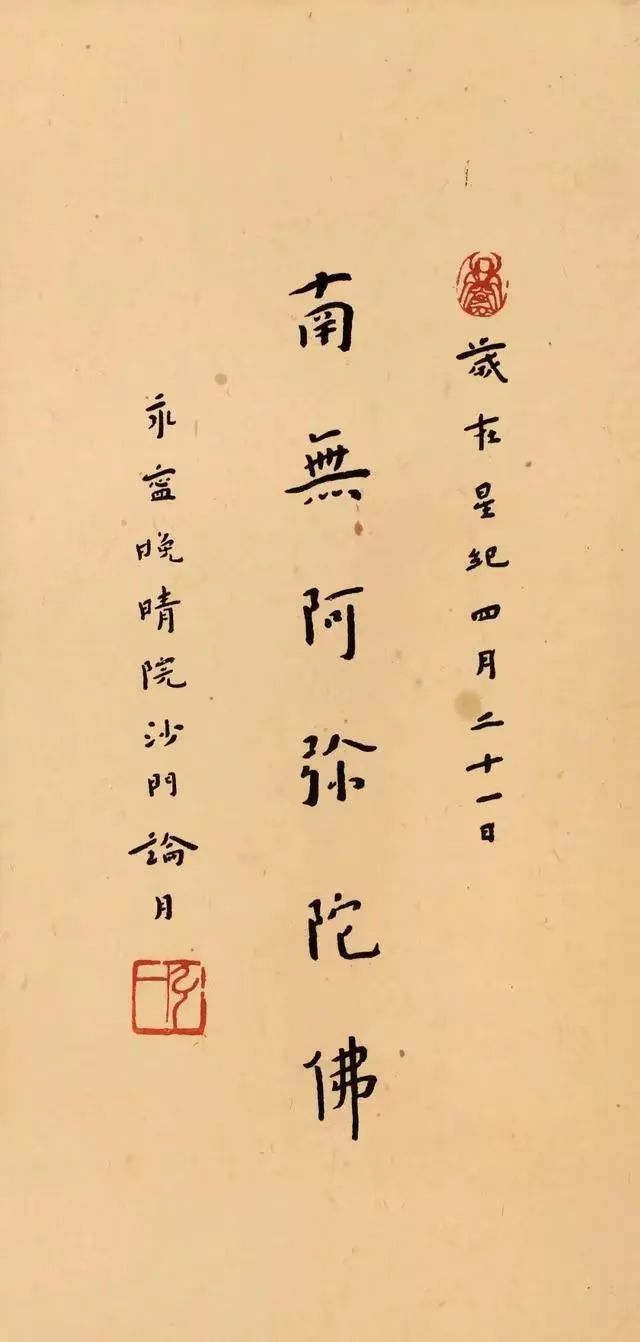 歲在星紀四月二十一日
南無阿弥陀佛
永寧晚晴院沙門論月
弘一